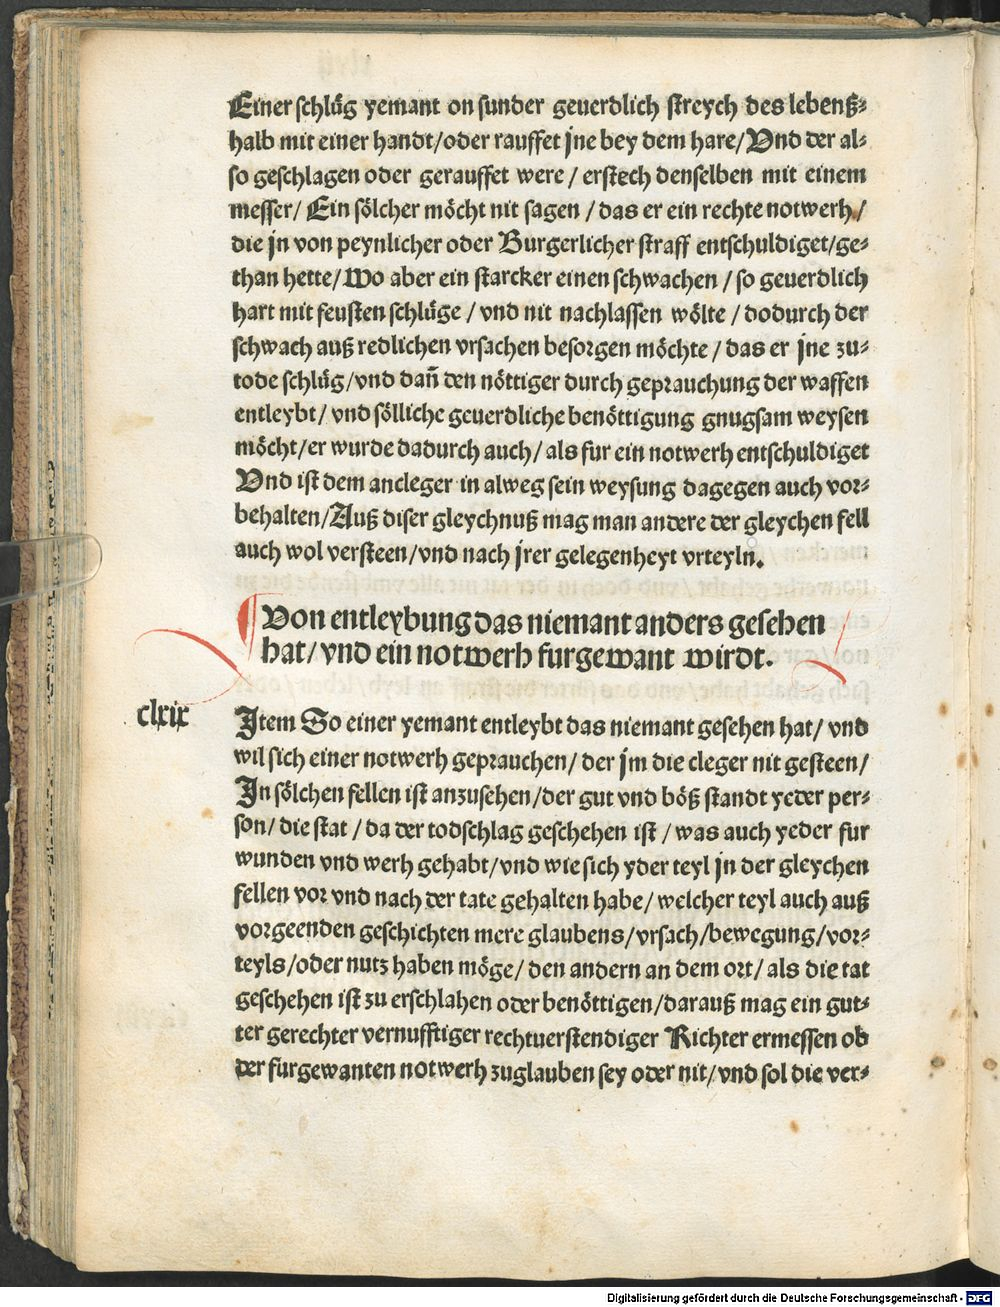 Einer schlůg yemant on sunder geuerdlich streych des lebenß⸗
halb mit einer handt/oder rauffet jne bey dem hare/Vnd der al⸗
so geschlagen oder gerauffet were / erstech denselben mit einem
messer/ Ein sölcher möcht nit sagen / das er ein rechte notwerh/
die jn von peynlicher oder Burgerlicher straff entschuldiget/ge⸗
than hette/Wo aber ein starcker einen schwachen / so geuerdlich
hart mit feusten schlůge / vnd nit nachlassen wölte / dodurch der
schwach auß redlichen vrsachen besorgen möchte / das er jne zu⸗
tode schlůg/vnd dan̄ den nöttiger durch geprauchung der waffen
entleybt/ vnd sölliche geuerdliche benöttigung gnugsam weysen
möcht/er wurde dadurch auch/ als fur ein notwerh entschuldiget
Vnd ist dem ancleger in alweg sein weysung dagegen auch vor⸗
behalten/Auß diser gleychnuß mag man andere der gleychen fell
auch wol versteen/vnd nach jrer gelegenheyt vrteyln.
¶ Von entleybung das niemant anders gesehen
hat/ vnd ein notwerh furgewant wirdt.
clxix
Item So einer yemant entleybt das niemant gesehen hat/ vnd
wil sich einer notwerh geprauchen/ der jm die cleger nit gesteen/
In sölchen fellen ist anzusehen/der gut vnd böß standt yeder per⸗
son/ die stat / da der todschlag geschehen ist / was auch yeder fur
wunden vnd werh gehabt/vnd wie sich yder teyl jn der gleychen
fellen vor vnd nach der tate gehalten habe/ welcher teyl auch auß
vorgeenden geschichten mere glaubens/vrsach/bewegung/vor⸗
teyls/oder nutz haben möge/ den andern an dem ort/ als die tat
geschehen ist zu erschlahen oder benöttigen/darauß mag ein gut⸗
ter gerechter vernufftiger rechtuerstendiger Richter ermessen ob
der furgewanten notwerh zuglauben sey oder nit/vnd sol die ver⸗
Digitalisierung gefördert durch die Deutsche Forschungsgemeinschaft - DFG